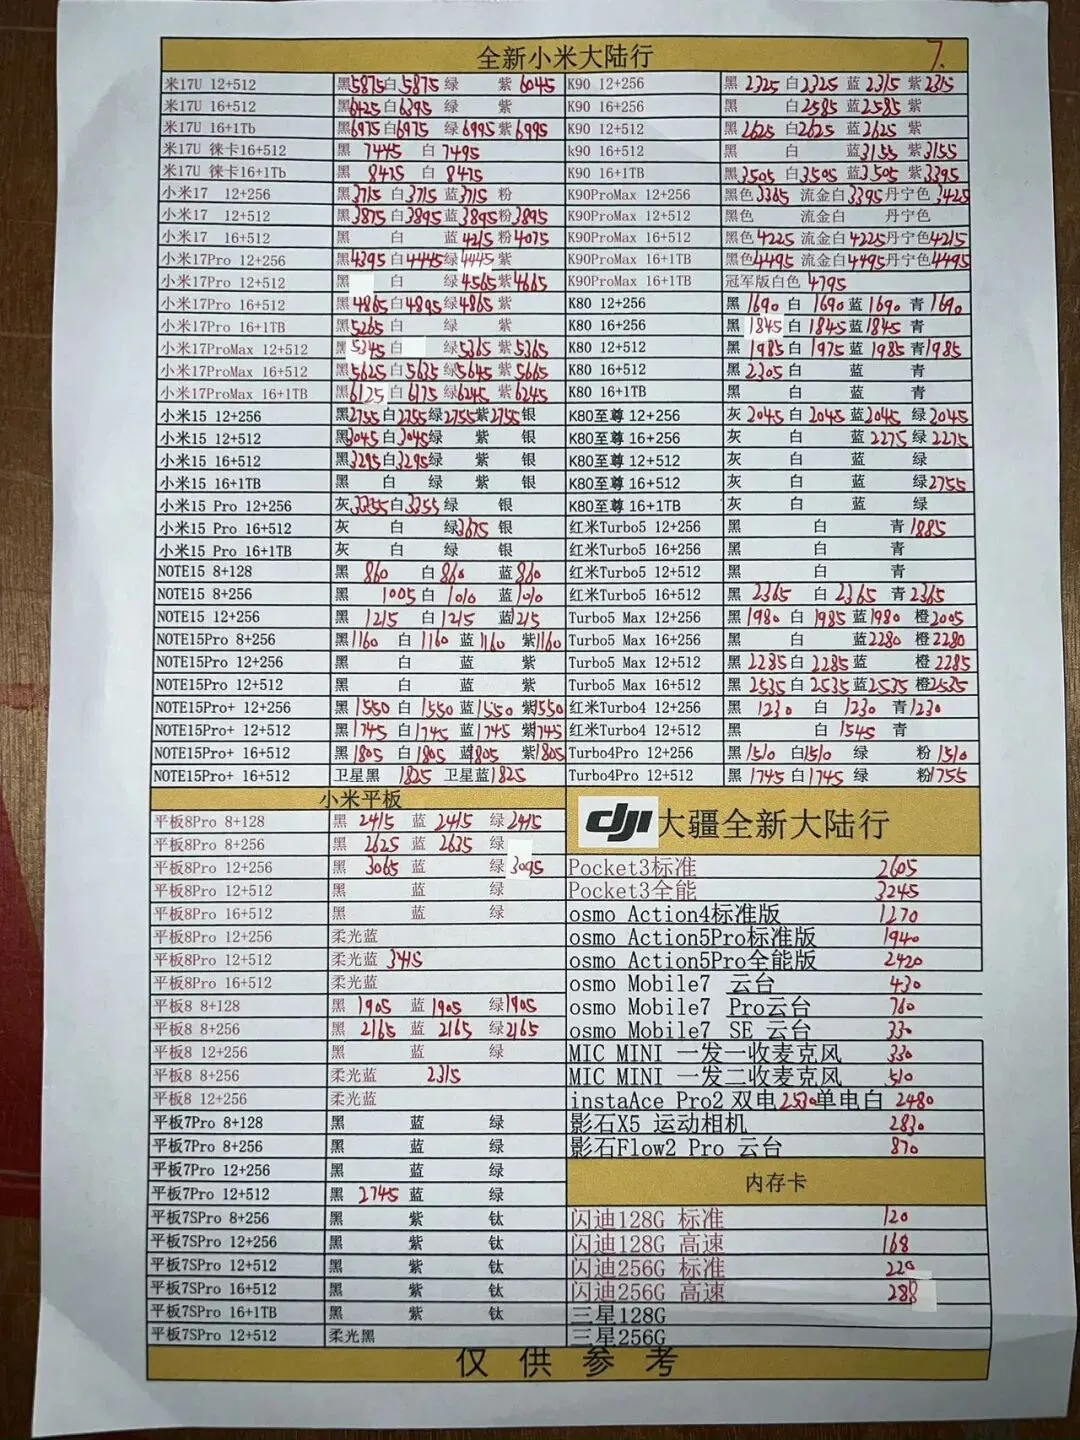 全新小米大陆行 7.
米17U 12+512 黑5875白5875 绿 紫 6045 K90 12+256 黑 2325 白2325 蓝 2315 紫2315
米17U 16+512 黑6425白6395 绿 紫 K90 16+256 黑 白2585 蓝2585 紫
米17U 16+1Tb 黑6975白6975 绿6995紫6995 K90 12+512 黑2625 白2625 蓝2625 紫
米17U 徕卡16+512 黑 7445 白 7495 k90 16+512 黑 白 蓝3155 紫3155
米17U 徕卡16+1Tb 黑 8475 白 8475 K90 16+1TB 黑3505 白3505 蓝3505 紫3395
小米17 12+256 黑3715白3715 蓝3715 粉 K90ProMax 12+256 黑色3365 流金白3395丹宁色3425
小米17 12+512 黑3875白3895蓝3895粉3895 K90ProMax 12+512 黑色 流金白 丹宁色
小米17 16+512 黑 白 蓝4215粉4075 K90ProMax 16+512 黑色4225 流金白4225丹宁色4215
小米17Pro 12+256 黑4395白4445绿4445紫 K90ProMax 16+1TB 黑色4495 流金白4495丹宁色4495
小米17Pro 12+512 黑 绿4565紫4665 K90ProMax 16+1TB 冠军版白色 4795
小米17Pro 16+512 黑4865白4895绿4865紫 K80 12+256 黑 1690 白 1690 蓝1690 青1690
小米17Pro 16+1TB 黑5265白 绿 紫 K80 16+256 黑 1845白 1845蓝1845 青
小米17ProMax 12+512 黑5345白 绿5365紫5365 K80 12+512 黑 1985白 1975 蓝 1985青1985
小米17ProMax 16+512 黑5625白5635绿5645紫5665 K80 16+512 黑 2305白 蓝 青
小米17ProMax 16+1TB 黑6125 白6175绿6245紫6245 K80 16+1TB 黑 白 蓝 青
小米15 12+256 黑2755白2755绿2755紫2755银 K80至尊 12+256 灰 2045白 2045蓝2045 绿2045
小米15 12+512 黑3045白3045绿 紫 银 K80至尊 16+256 灰 白 蓝 2275 绿2275
小米15 16+512 黑3295白3295绿 紫 银 K80至尊 12+512 灰 白 蓝 绿
小米15 16+1TB 黑 白 绿 紫 银 K80至尊 16+512 灰 白 蓝 绿2755
小米15 Pro 12+256 灰3255白3255绿 银 K80至尊 16+1TB 灰 白 蓝 绿
小米15 Pro 16+512 灰 白 绿3675银 红米Turbo5 12+256 黑 白 青1885
小米15 Pro 16+1TB 灰 白 绿 银 红米Turbo5 16+256 黑 白 青
NOTE15 8+128 黑 860 白860 蓝860 红米Turbo5 12+512 黑 白 青
NOTE15 8+256 黑 1005白 1010 蓝1010 红米Turbo5 16+512 黑 2365 白 2365 青2365
NOTE15 12+256 黑 1215 白1215 蓝1215 Turbo5 Max 12+256 黑1980 白 1985 蓝1980 橙2005
NOTE15Pro 8+256 黑1160 白 1160 蓝1160 紫1160 Turbo5 Max 16+256 黑 白 蓝2280 橙2280
NOTE15Pro 12+256 黑 白 蓝 紫 Turbo5 Max 12+512 黑 2285白 2285蓝 橙2285
NOTE15Pro 12+512 黑 白 蓝 紫 Turbo5 Max 16+512 黑 2535白 2535蓝2535 橙2535
NOTE15Pro+ 12+256 黑 1550 白1550 蓝1550 紫1550 红米Turbo4 12+256 黑 1230 白 1230 青1230
NOTE15Pro+ 12+512 黑1745 白1745 蓝1745 紫1745 红米Turbo4 12+512 黑 白 1545 青
NOTE15Pro+ 16+512 黑1805 白1805 蓝1805 紫1805 Turbo4Pro 12+256 黑1510 白1510 绿 粉1510
NOTE15Pro+ 16+512 卫星黑 1825 卫星蓝1825 Turbo4Pro 12+512 黑 1745白1745 绿 粉1755
小米平板
dji大疆全新大陆行
平板8Pro 8+128 黑 2415 蓝 2415 绿2415
平板8Pro 8+256 黑 2625 蓝 2635 绿
平板8Pro 12+256 黑 3065 蓝 绿3095 Pocket3标准 2605
平板8Pro 12+512 黑 蓝 绿 Pocket3全能 3245
平板8Pro 16+512 黑 蓝 绿 osmo Action4标准版 1270
平板8Pro 12+256 柔光蓝 osmo Action5Pro标准版 1940
平板8Pro 12+512 柔光蓝 3415 osmo Action5Pro全能版 2420
平板8Pro 16+512 柔光蓝 osmo Mobile7 云台 430
平板8 8+128 黑 1905 蓝1905 绿1905 osmo Mobile7 Pro云台 760
平板8 8+256 黑 2165 蓝 2165 绿2165 osmo Mobile7 SE 云台 330
平板8 12+256 黑 蓝 绿 MIC MINI 一发一收麦克风 330
平板8 8+256 柔光蓝 2315 MIC MINI 一发二收麦克风 510
平板8 12+256 柔光蓝 instaAce Pro2 双电2530单电白 2480
平板7Pro 8+128 黑 蓝 绿 影石X5 运动相机 2830
平板7Pro 8+256 黑 蓝 绿 影石Flow2 Pro 云台 870
平板7Pro 12+256 黑 蓝 绿 内存卡
平板7Pro 12+512 黑 2745 蓝 绿
平板7SPro 8+256 黑 紫 钛 闪迪128G 标准 120
平板7SPro 12+256 黑 紫 钛 闪迪128G 高速 168
平板7SPro 12+512 黑 紫 钛 闪迪256G 标准 220
平板7SPro 16+512 黑 紫 钛 闪迪256G 高速 288
平板7SPro 16+1TB 黑 紫 钛 三星128G
平板7SPro 12+512 柔光黑 三星256G
仅供参考